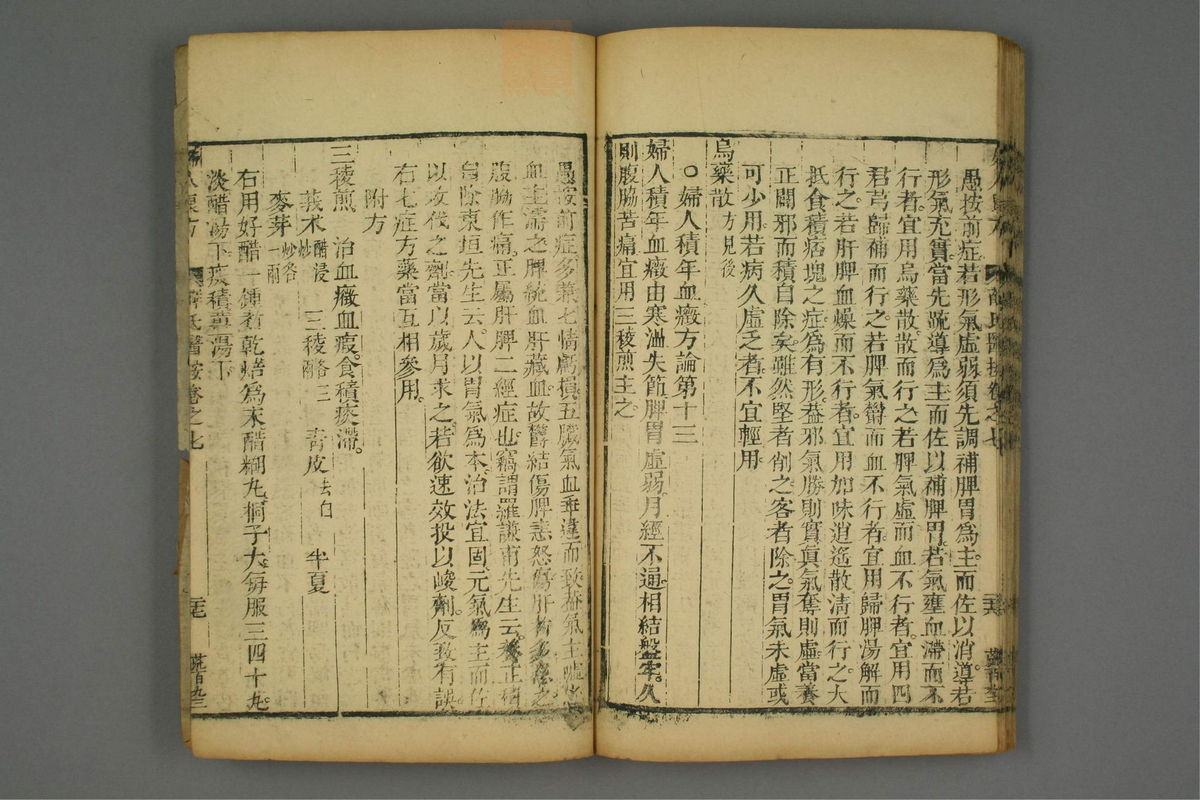 愚按前症若形氣虛弱須先調補脾胃爲主而佐以消導若
形氣充實當先疏導爲主而佐以補脾胃若氣壅血滯而不
行者宜用烏藥散散而行之若脾氣虛而血不行者宜用四
君芎歸補而行之若脾氣鬱而血不行者宜用歸脾湯解而
行之若肝脾血燥而不行者宜用加味逍遙散清而行之大
抵食積痞塊之症爲有形葢邪氣勝則實眞氣奪則虛當養
正闢邪而積自除矣雖然堅者削之客者除之胃氣未虛或
可少用若病久虛乏者不宜輕用
烏藥散方見後
○婦人積年血癥方論第十三
婦人積年血癥由寒溫失節脾胃虛弱月經不通相結盤牢久
則腹脇苦痛宜用三稜煎主之
愚按前症多兼七情虧損五臟氣血乖違而致葢氣主噓之
血主濡之脾統血肝藏血故鬱結傷脾恚怒傷肝者多患之
腹脇作痛正屬肝脾二經症也竊謂羅謙甫先生云養正積
自除東垣先生云人以胃氣爲本治法宜固元氣爲主而佐
以攻伐之劑當以歲月求之若欲速效投以峻劑反致有誤
右七症方藥當互相參用
附方
三稜煎 治血癥血瘕食積痰滯
莪朮醋浸炒 三稜 三 青皮去白 半夏
麥芽炒各一兩
右用好醋一鍾煮乾焙爲末醋糊丸桐子大每服三四十丸
淡醋湯下痰積薑湯下
薛氏醫按卷之七